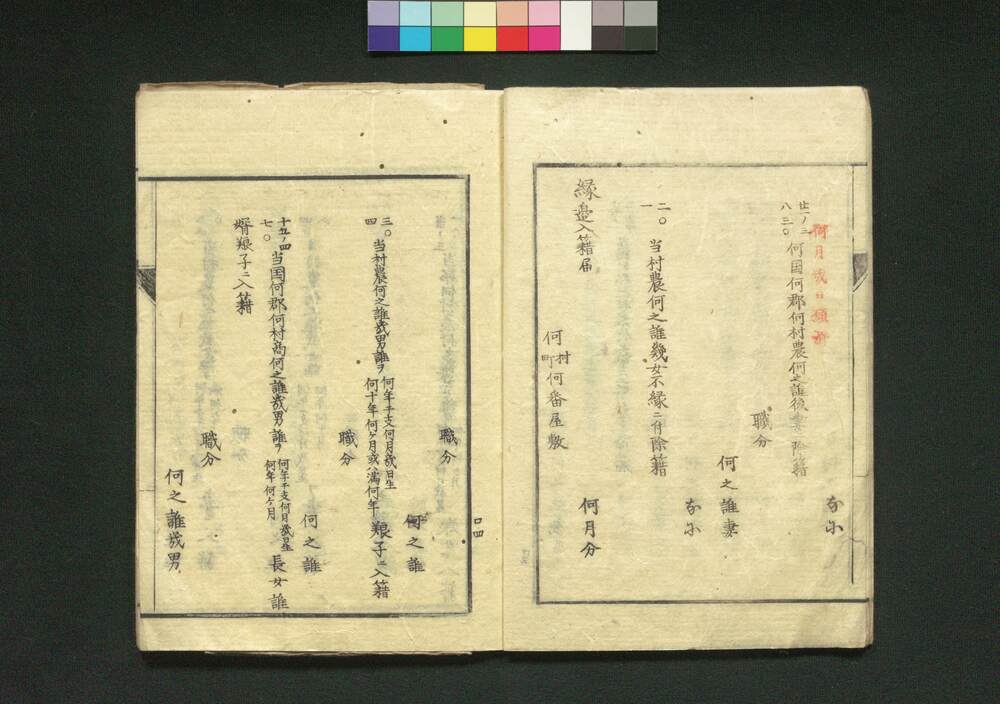 なに
何月幾日願済
廿一ノ三
八三〇
何国何郡何村農何之誰後妻除籍
職分
何之誰妻
なに
二〇
一
当村農何之誰幾女不縁ニ付除籍
縁邉入籍届
何月分
何村町何番屋敷
口四
職分
何之誰
三〇
四
当村農何之誰幾男誰ヲ
何年干支何月幾日生
何十年何ケ月或ハ満何年
養子ニ入籍
職分
何之誰
十五ノ四
七〇
当国何郡何村商何之誰幾男誰ヲ
何年干支何月幾日生
何年何ケ月
長女誰
婿養子ニ入籍
職分
何之誰幾男